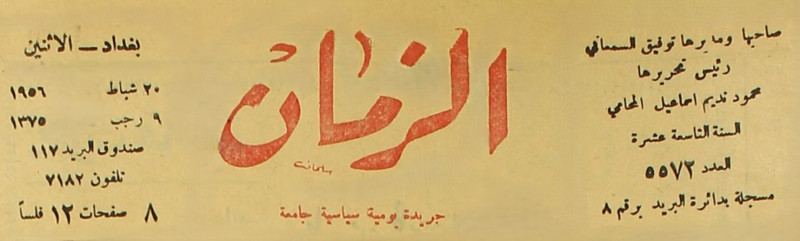 صاحبها ومديرها توفيق السمعاني
رئيس تحريرها
محمود نديم اسماعيل المحامي
السنة التاسعة عشرة
العدد ٥٥٧٢
مسجلة بدائرة البريد برقم ٨
الزمان
جريدة يومية سياسية جامعة
بغداد – الاثنين
٢٠ شباط ١٩٥٦
٩ رجب ١٣٧٥
صندوق البريد ١١٧
تلفون ٧١٨٢
٨ صفحات ١٢ فلساً